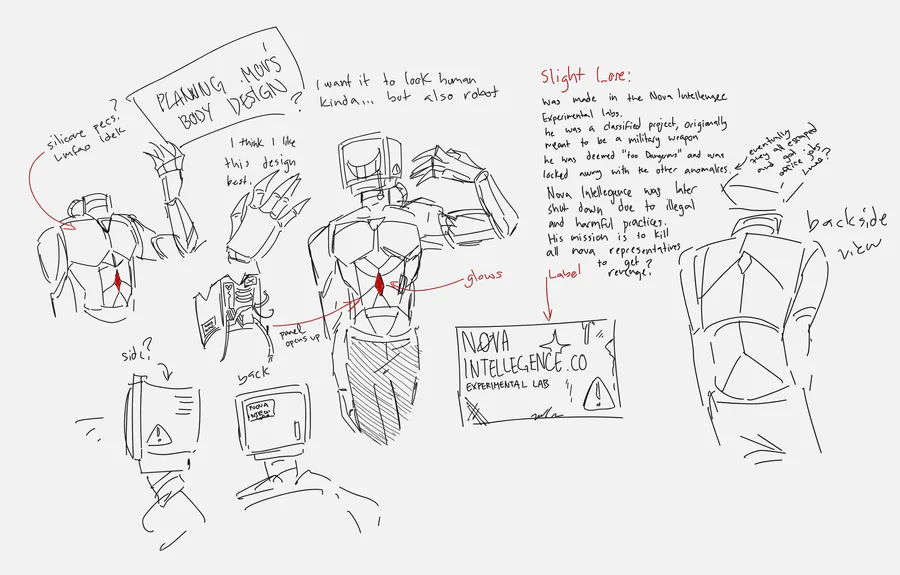 PLANNING .MOV'S
BODY DESIGN
?
I want it to look human
kinda... but also robot
silicone pecs.?
Lmfao Idek
I think I like
this design
best.
glows
panel
opens up
side?
back
NOVA
Slight Lore:
was made in the Nova Intellegence
Experimental Labs.
he was a classified project, origionally
meant to be a military weapon
he was deemed "too Dangerous" and was
locked away with the other anomalies.
Nova Intellegence was later
shut down due to illegal
and harmful practices.
His mission is to kill
all nova representatives
to get
revenge?
eventually
they all escaped
and got
office jobs
Lmao?
Label
NOVA
INTELLEGENCE.CO
EXPERIMENTAL LAB
!
backside
view
?